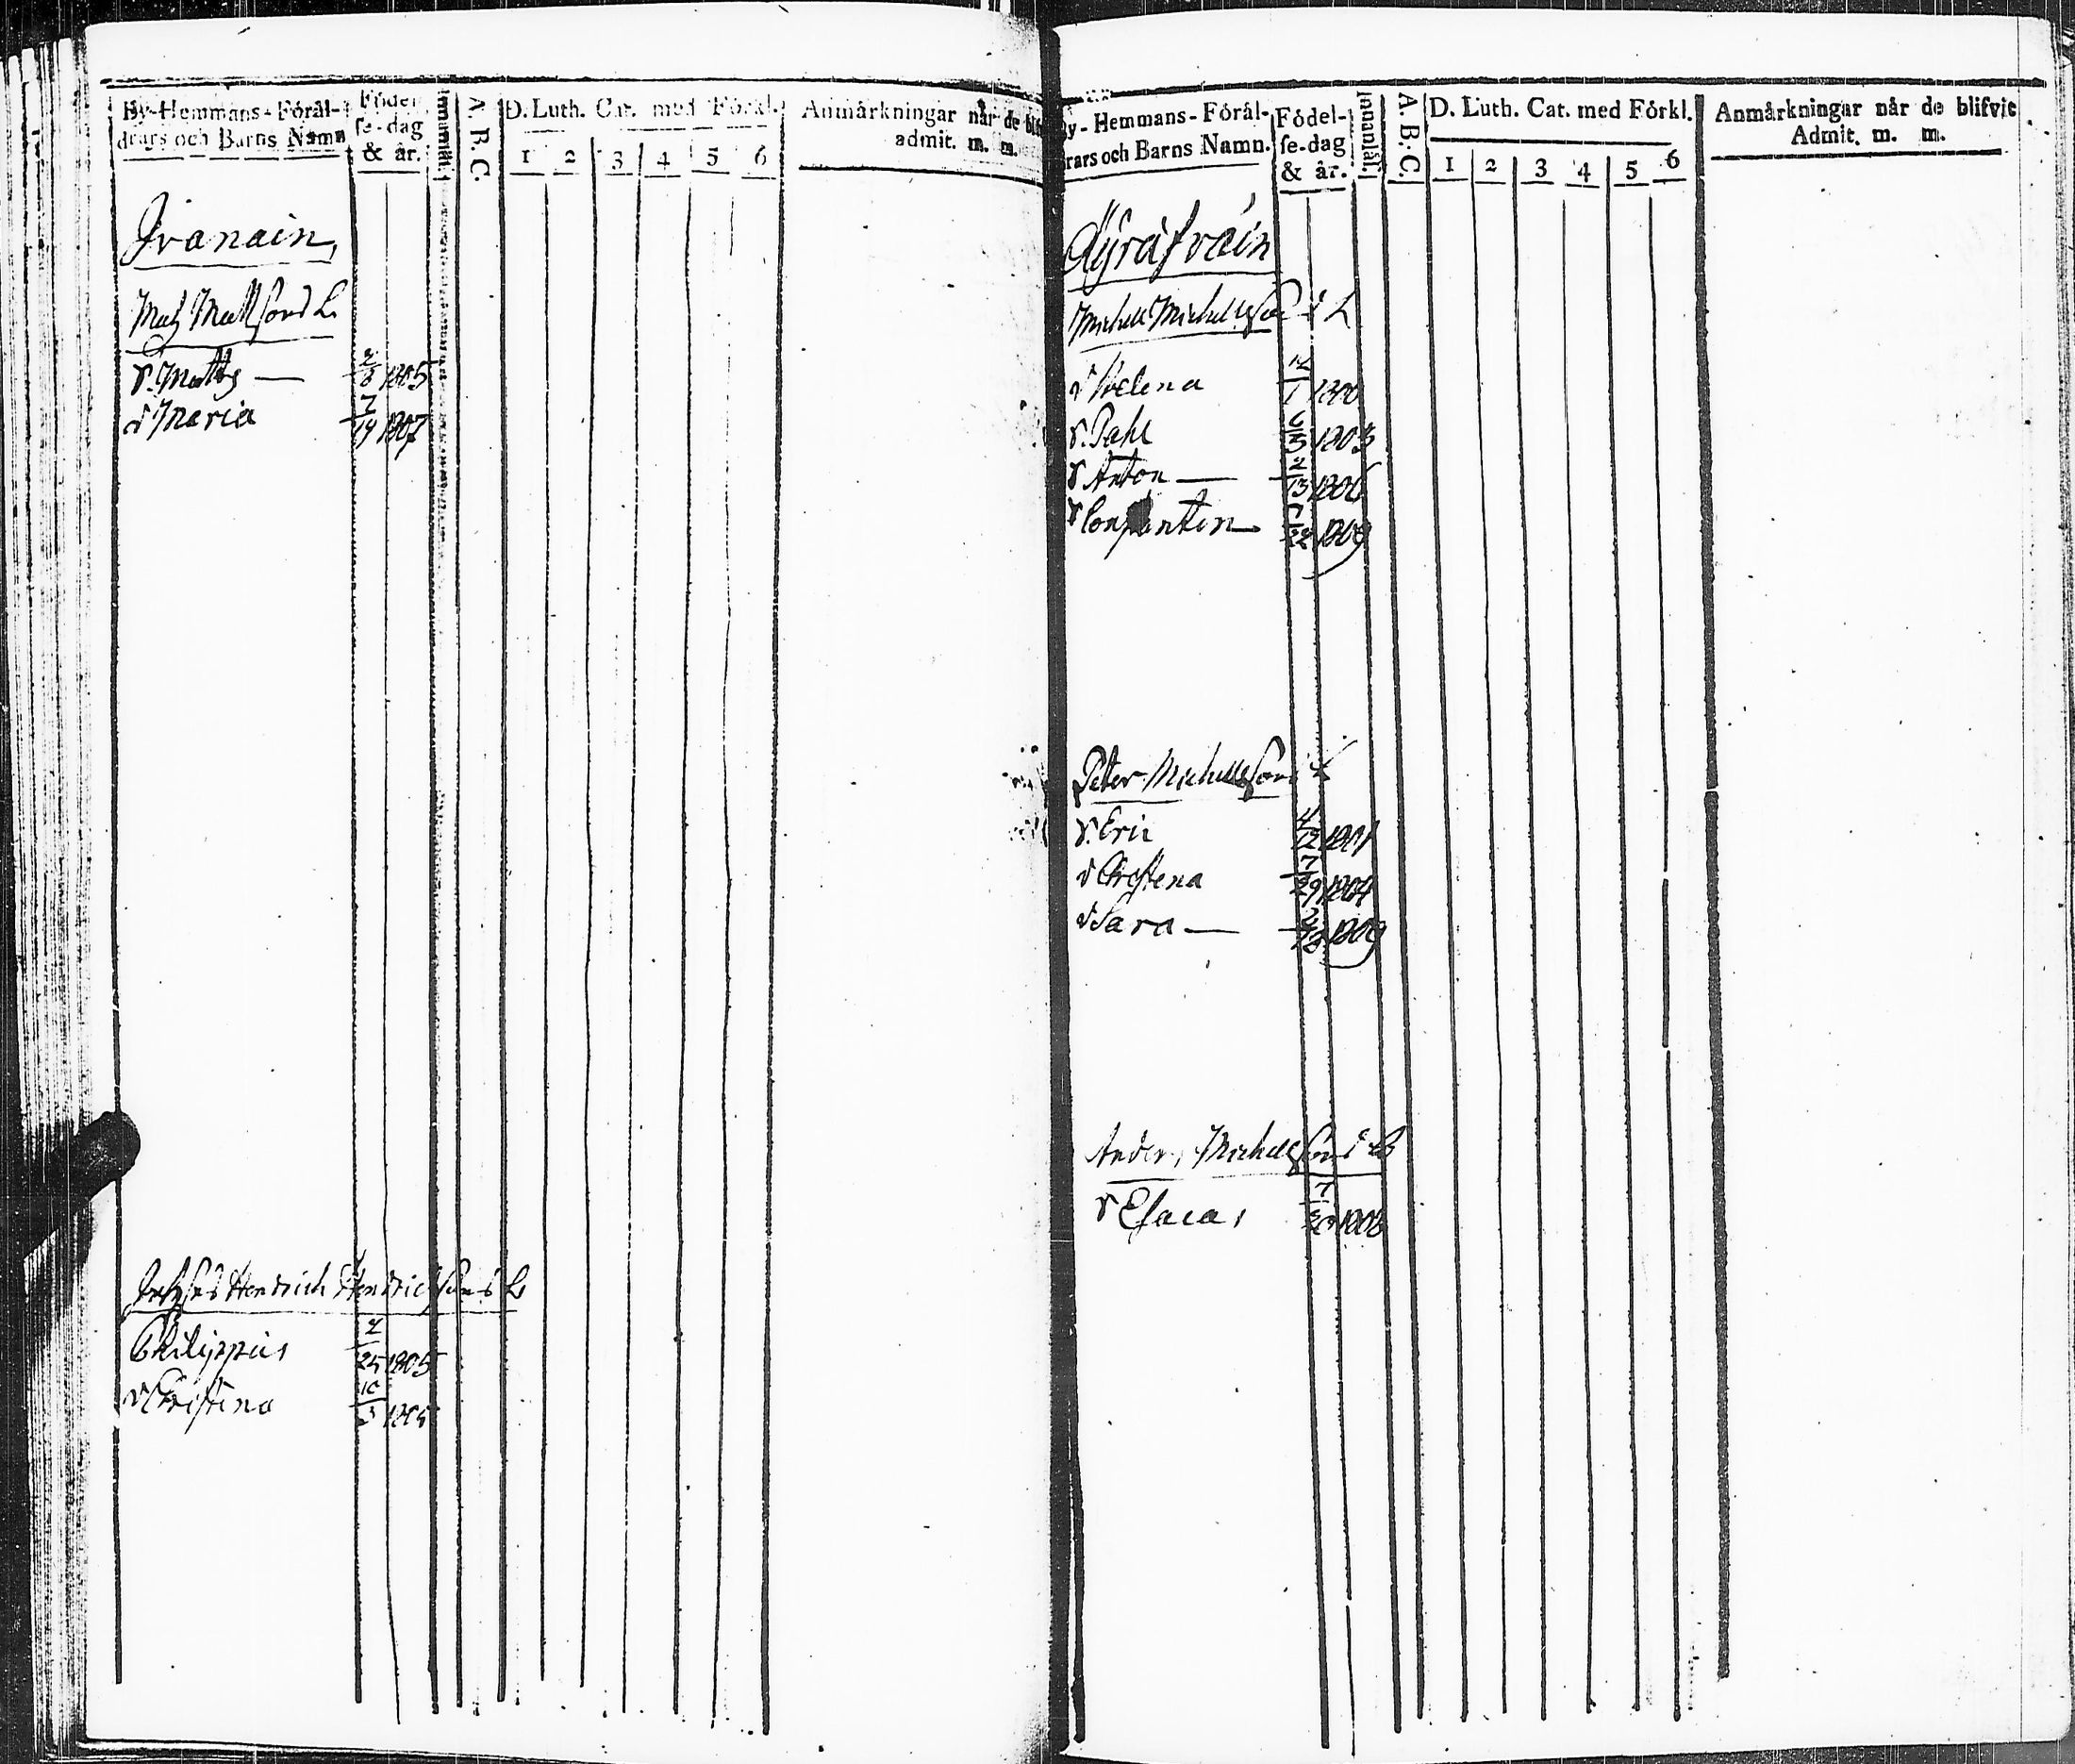 By-Hemmans-Föräl-
drars och Barns Namn
Födel-
se-dag
& år.
Innanläs.
A. B. C.
D. Luth. Cat. med Förkl.
1 2 3 4 5 6
Anmärkningar når de blif
admit. m. m.
Ivanain,
Matz Mattsons b.
S. Matts — 2/8 1805
d Maria 7/14 1807
Hendrich Hendrichsons b
Philippus 2/25 1805
d Christina 10/3 1805
By-Hemmans-Föräl-
rars och Barns Namn.
Födel-
se-dag
& år.
Innanläs.
A. B. C.
D. Luth. Cat. med Förkl.
1 2 3 4 5 6
Anmärkningar når de blifvit
Admit. m. m.
Michell Michellsson b
d Helena 1800
S. Pahl 1803
S Anton — 2/13 1806
S Constantin 1809
Peter Michellsson
S. Eric 1801
d Christena 7/29 1804
d Sara — 1809
Anders Michellsons b
S Esaias 7/29 1808